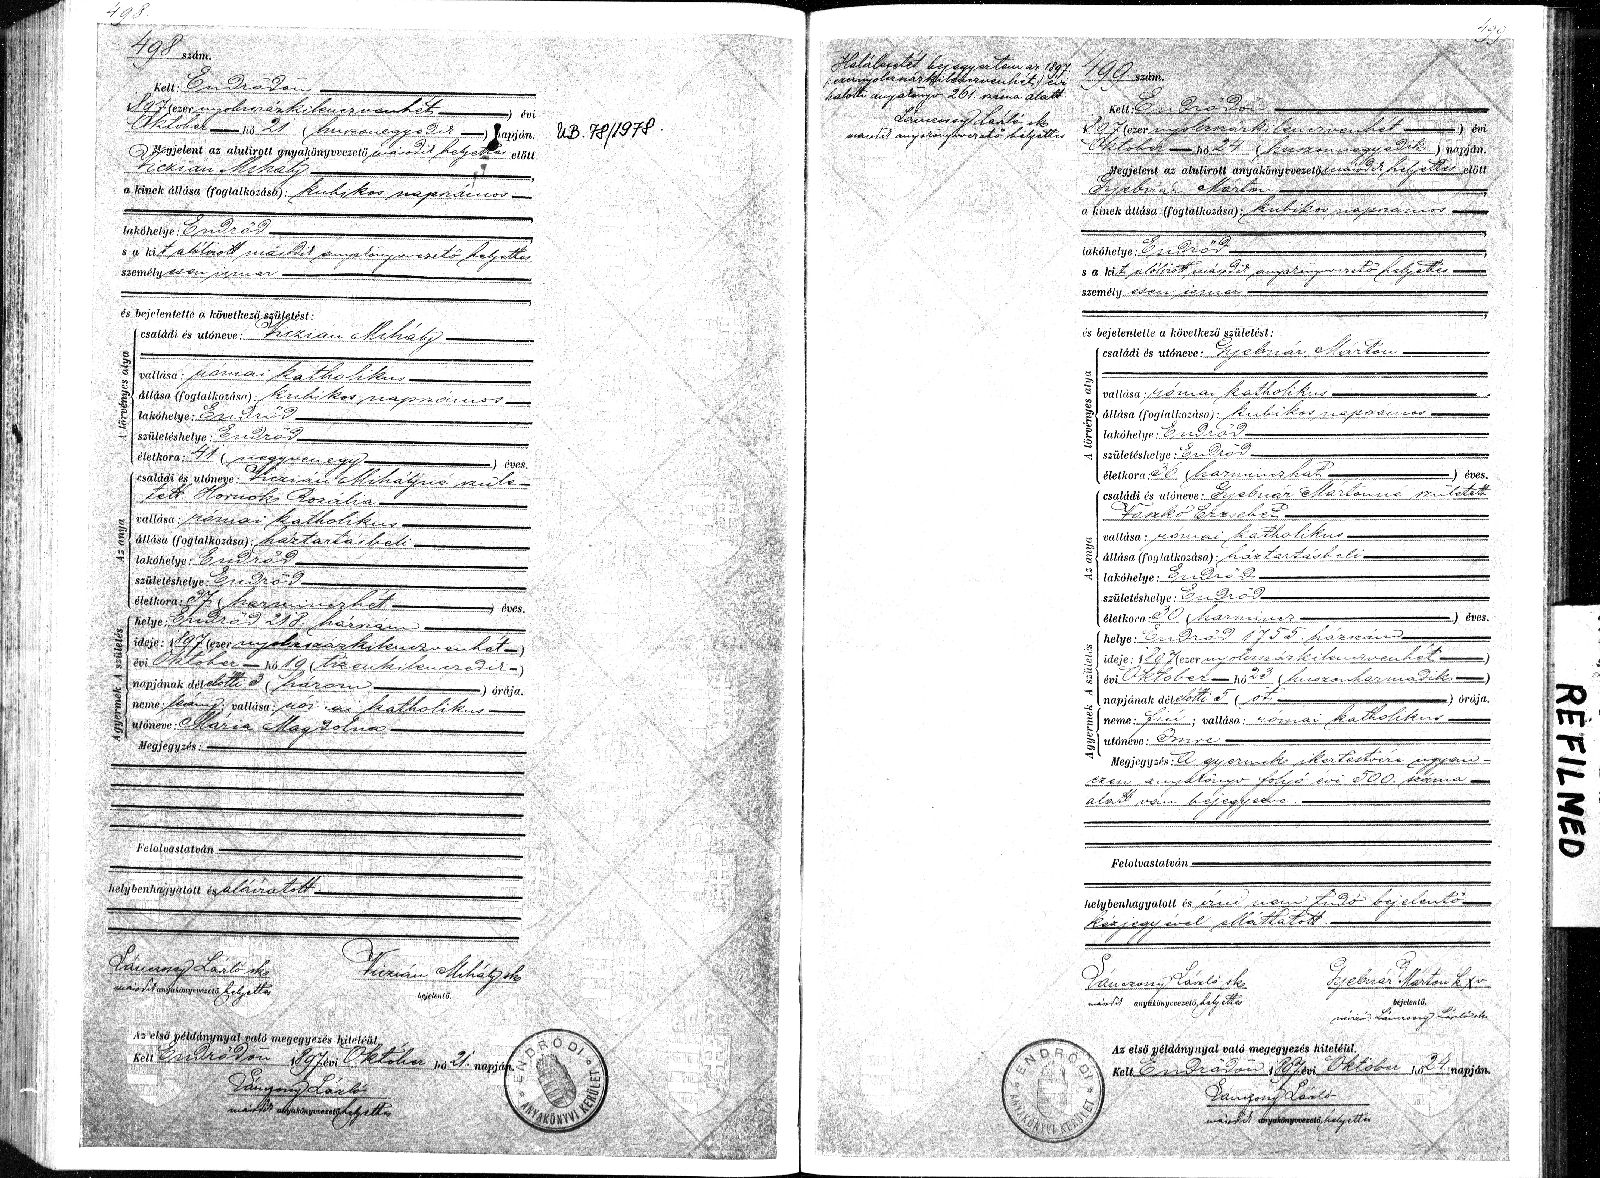 498.
498 szám.
Kelt: Endrődön
1897 (ezer nyolcszázkilencvenhét) évi
Október hó 21 (huszonegyedik) napján.
UB. 78/1978.
Megjelent az alulirott anyakönyvvezető második helyettes előtt
Viczián Mihály
a kinek állása (foglalkozása): kubikos napszámos
lakóhelye: Endrőd
s a kit alólirott második anyakönyvvezető helyettes
személyesen ismer
és bejelentette a következő születést:
A törvényes atya
családi és utóneve: Viczián Mihály
vallása: római katholikus
állása (foglalkozása): kubikos napszámos
lakóhelye: Endrőd
születéshelye: Endrőd
életkora: 41 (negyvenegy) éves.
Az anya
családi és utóneve: Viczián Mihályné szüle-
tett Hornok Rozália
vallása: római katholikus
állása (foglalkozása): háztartásbeli
lakóhelye: Endrőd
születéshelye: Endrőd
életkora: 37 (harminczhét) éves.
A születés
helye: Endrőd 218. házszám
ideje: 1897 (ezer nyolcszázkilencvenhét)
évi Október hó 19 (tizenkilenczedik)
napjának délelőtti 3 (három) órája.
A gyermek
neme: leány; vallása: római katholikus
utóneve: Mária Magdolna
Megjegyzés:
Felolvastatván
helybenhagyatott és aláiratott
László sk
Viczián Mihály sk
második anyakönyvvezető, helyettes
bejelentő.
Az első példánynyal való megegyezés hiteléül.
Kelt Endrődön 1897 évi Október hó 21. napján.
László
második anyakönyvvezető, helyettes
ENDRŐDI ANYAKÖNYVI KERÜLET
499
Halálesetét bejegyeztem az 1897
(ezernyolczszázkilenczvenhét) évi
halotti anyakönyv 261. száma alatt
László sk
második anyakönyvvezető helyettes
499 szám.
Kelt: Endrődön
1897 (ezer nyolcszázkilencvenhét) évi
Október hó 24 (huszonnegyedik) napján.
Megjelent az alulirott anyakönyvvezető második helyettes előtt
Gyebnár Márton
a kinek állása (foglalkozása): kubikos napszámos
lakóhelye: Endrőd
s a kit alólirott második anyakönyvvezető helyettes
személyesen ismer
és bejelentette a következő születést:
A törvényes atya
családi és utóneve: Gyebnár Márton
vallása: római katholikus
állása (foglalkozása): kubikos napszámos
lakóhelye: Endrőd
születéshelye: Endrőd
életkora: 36 (harminczhat) éves.
Az anya
családi és utóneve: Gyebnár Mártonné született
Vaszkó Erzsébet
vallása: római katholikus
állása (foglalkozása): háztartásbeli
lakóhelye: Endrőd
születéshelye: Endrőd
életkora: 30 (harmincz) éves.
A születés
helye: Endrőd 1755. házszám
ideje: 1897 (ezer nyolcszázkilencvenhét)
évi Október hó 23 (huszonharmadik)
napjának délelőtti 5 (öt) órája.
A gyermek
neme: fiú; vallása: római katholikus
utóneve: Imre
Megjegyzés: A gyermek ikertestvére ugyan-
ezen anyakönyv folyó évi 500. száma
alatt van bejegyezve.
Felolvastatván
helybenhagyatott és irni nem tudó bejelentő
kézjegyével elláttatott
László sk
Gyebnár Márton k x v
második anyakönyvvezető, helyettes
bejelentő.
László sk
Az első példánynyal való megegyezés hiteléül.
Kelt Endrődön 1897 évi Október hó 24 napján.
László
második anyakönyvvezető, helyettes
ENDRŐDI ANYAKÖNYVI KERÜLET
REFILMED